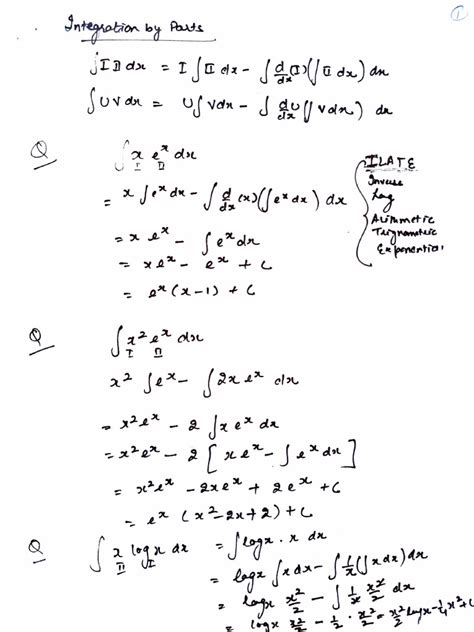 ①
Integration by Parts
∫I II dx = I ∫II dx - ∫ d/dx (I) (∫II dx) dx
∫UV dx = U ∫V dx - ∫ dU/dx (∫V dx) dx
Q ∫ x e^x dx
I II
= x ∫e^x dx - ∫ d/dx (x) (∫e^x dx) dx
= x e^x - ∫e^x dx
= x e^x - e^x + C
= e^x (x-1) + C
ILATE
Inverse
Log
Arithmetic
Trignometric
Exponential
Q ∫ x² e^x dx
I II
x² ∫e^x - ∫2x e^x dx
= x² e^x - 2 ∫x e^x dx
= x² e^x - 2 [ x e^x - ∫e^x dx ]
= x² e^x - 2x e^x + 2 e^x + C
= e^x (x² - 2x + 2) + C
Q ∫ x log x dx = ∫ log x · x dx
II I
= log x ∫ x dx - ∫ 1/x (∫x dx) dx
= log x x²/2 - ∫ 1/x x²/2 dx
= log x x²/2 - 1/2 · x²/2 = x²/2 log x - 1/4 x² + C